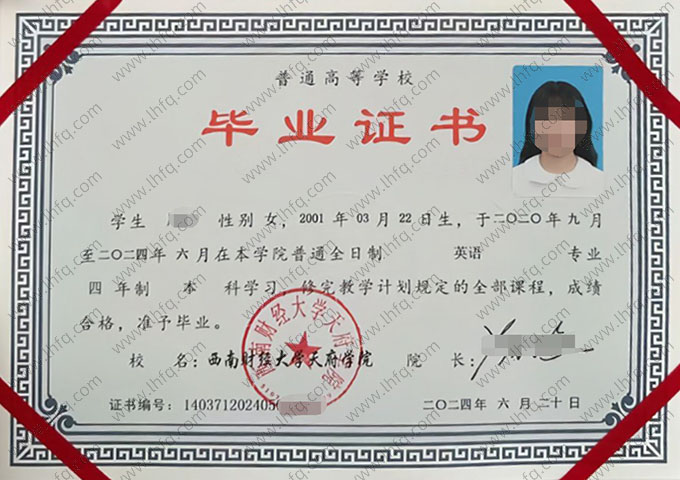 普通高等学校
毕业证书
学生 性别 女，2001 年 03 月 22 日生，于二〇二〇年 九 月
至二〇二四年 六 月在本学院普通全日制 英语 专业
四 年制 本 科学习 修完教学计划规定的全部课程，成绩
合格，准予毕业。
校 名：西南财经大学天府学院 院 长：
西南财经大学天府学院
证书编号：140371202405
二〇二四年 六 月 二十 日
www.lhfq.com